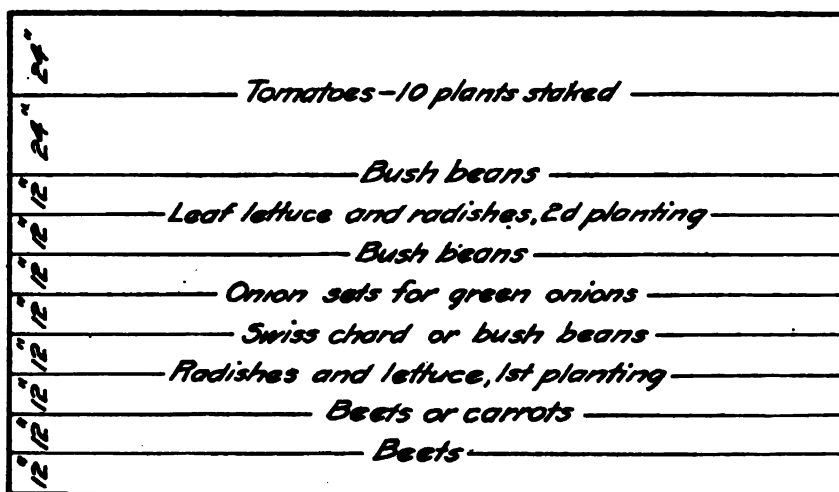 24"
Tomatoes-10 plants staked
24"
Bush beans
12"
Leaf lettuce and radishes, 2d planting
12"
Bush beans
12"
Onion sets for green onions
12"
Swiss chard or bush beans
12"
Radishes and lettuce, 1st planting
12"
Beets or carrots
12"
Beets
12"